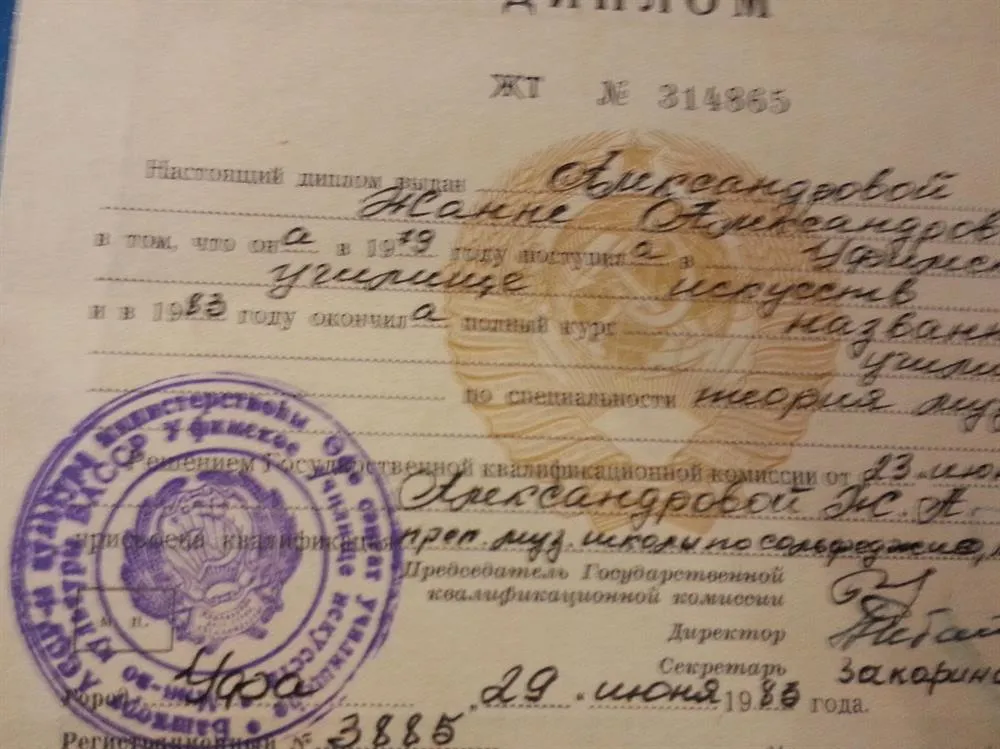 ДИПЛОМ
ЖТ № 314865
Настоящий диплом выдан Александровой
Жанне Александров
в том, что она в 1979 году поступила в Уфимск
училище искусств
и в 1983 году окончила полный курс названн
учили
по специальности теория муз
Решением Государственной квалификационной комиссии от 23 июн
Александровой Ж. А.
присвоена квалификация преп. муз. школы по сольфеджио,
Председатель Государственной
квалификационной комиссии
Директор
Секретарь Закарин
М. П.
Город Уфа 29 июня 1983 года.
Регистрационный № 3885
Министерство культуры БАССР Уфимское училище искусств